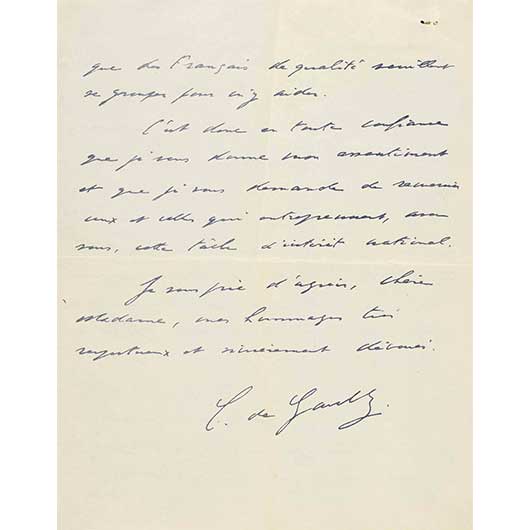 que des Français de qualité veuillent
se grouper pour m'y aider.
C'est donc en toute confiance
que je vous donne mon assentiment
et que je vous demande de remercier
ceux et celles qui entreprennent, avec
vous, cette tâche d'intérêt national.
Je vous prie d'agréer, chère
Madame, mes hommages très
respectueux et sincèrement dévoués.
C. de Gaulle